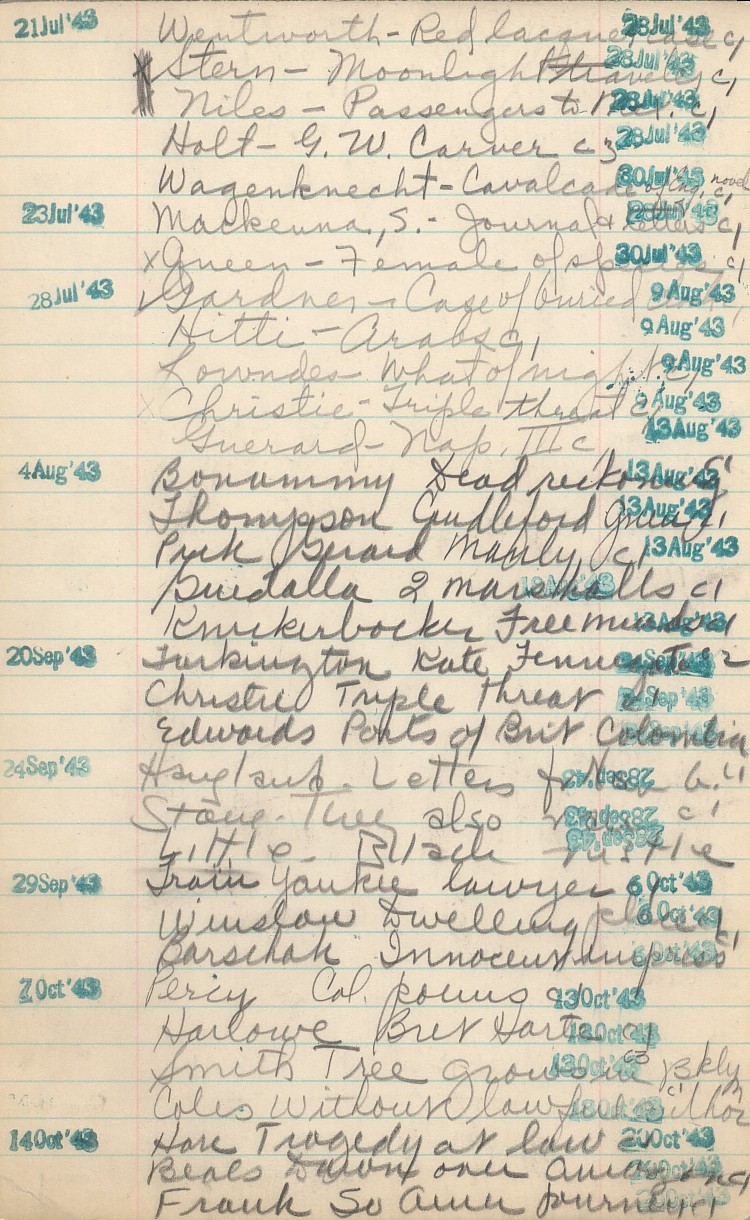 21Jul'43 Wentworth - Red lacquer case c1 28Jul'43
Stern - Moonlight traveler c1 28Jul'43
Niles - Passengers to Mex. c1 28Jul'43
Holt - G. W. Carver c3 28Jul'43
Wagenknecht - Cavalcade of Eng. novel c1 30Jul'43
23Jul'43 Mackenna, S. - Journal & letters c1
x Queen - Female of species c1 30Jul'43
28Jul'43 Gardner - Case of buried 9Aug'43
Hitti - Arabs c1 9Aug'43
Lowndes - What of night c1 9Aug'43
x Christie - Triple threat c1 9Aug'43
Guerard - Nap. III c1 13Aug'43
4Aug'43 Bonnamy Dead reckoning c1 13Aug'43
Thompson Guilford c1 13Aug'43
Peck Gerard Manly c1 13Aug'43
Guedalla 2 marshalls c1 13Aug'43
Knickerbocker Free minds c1 13Aug'43
20Sep'43 Tarkington Kate Fennigate c2
Christie Triple threat c1
Edwards Ports of Brit Colombia
24Sep'43 Letters f New G. c1 28Sep'43
Stone - They also c1 28Sep'43
Little - Black thistle 28Sep'43
29Sep'43 Train Yankee lawyer 6Oct'43
Winslow Dwelling place c1 6Oct'43
Barschak Innocent empress c1 6Oct'43
7Oct'43 Percy Col. poems c1 13Oct'43
Harlowe Bret Harte c1 13Oct'43
Smith Tree grows in Bklyn c3 13Oct'43
Coles Without lawful author c1
14Oct'43 Hare Tragedy at law c1 20Oct'43
Beals Dawn over Amazon c1
Frank So Amer journey c1